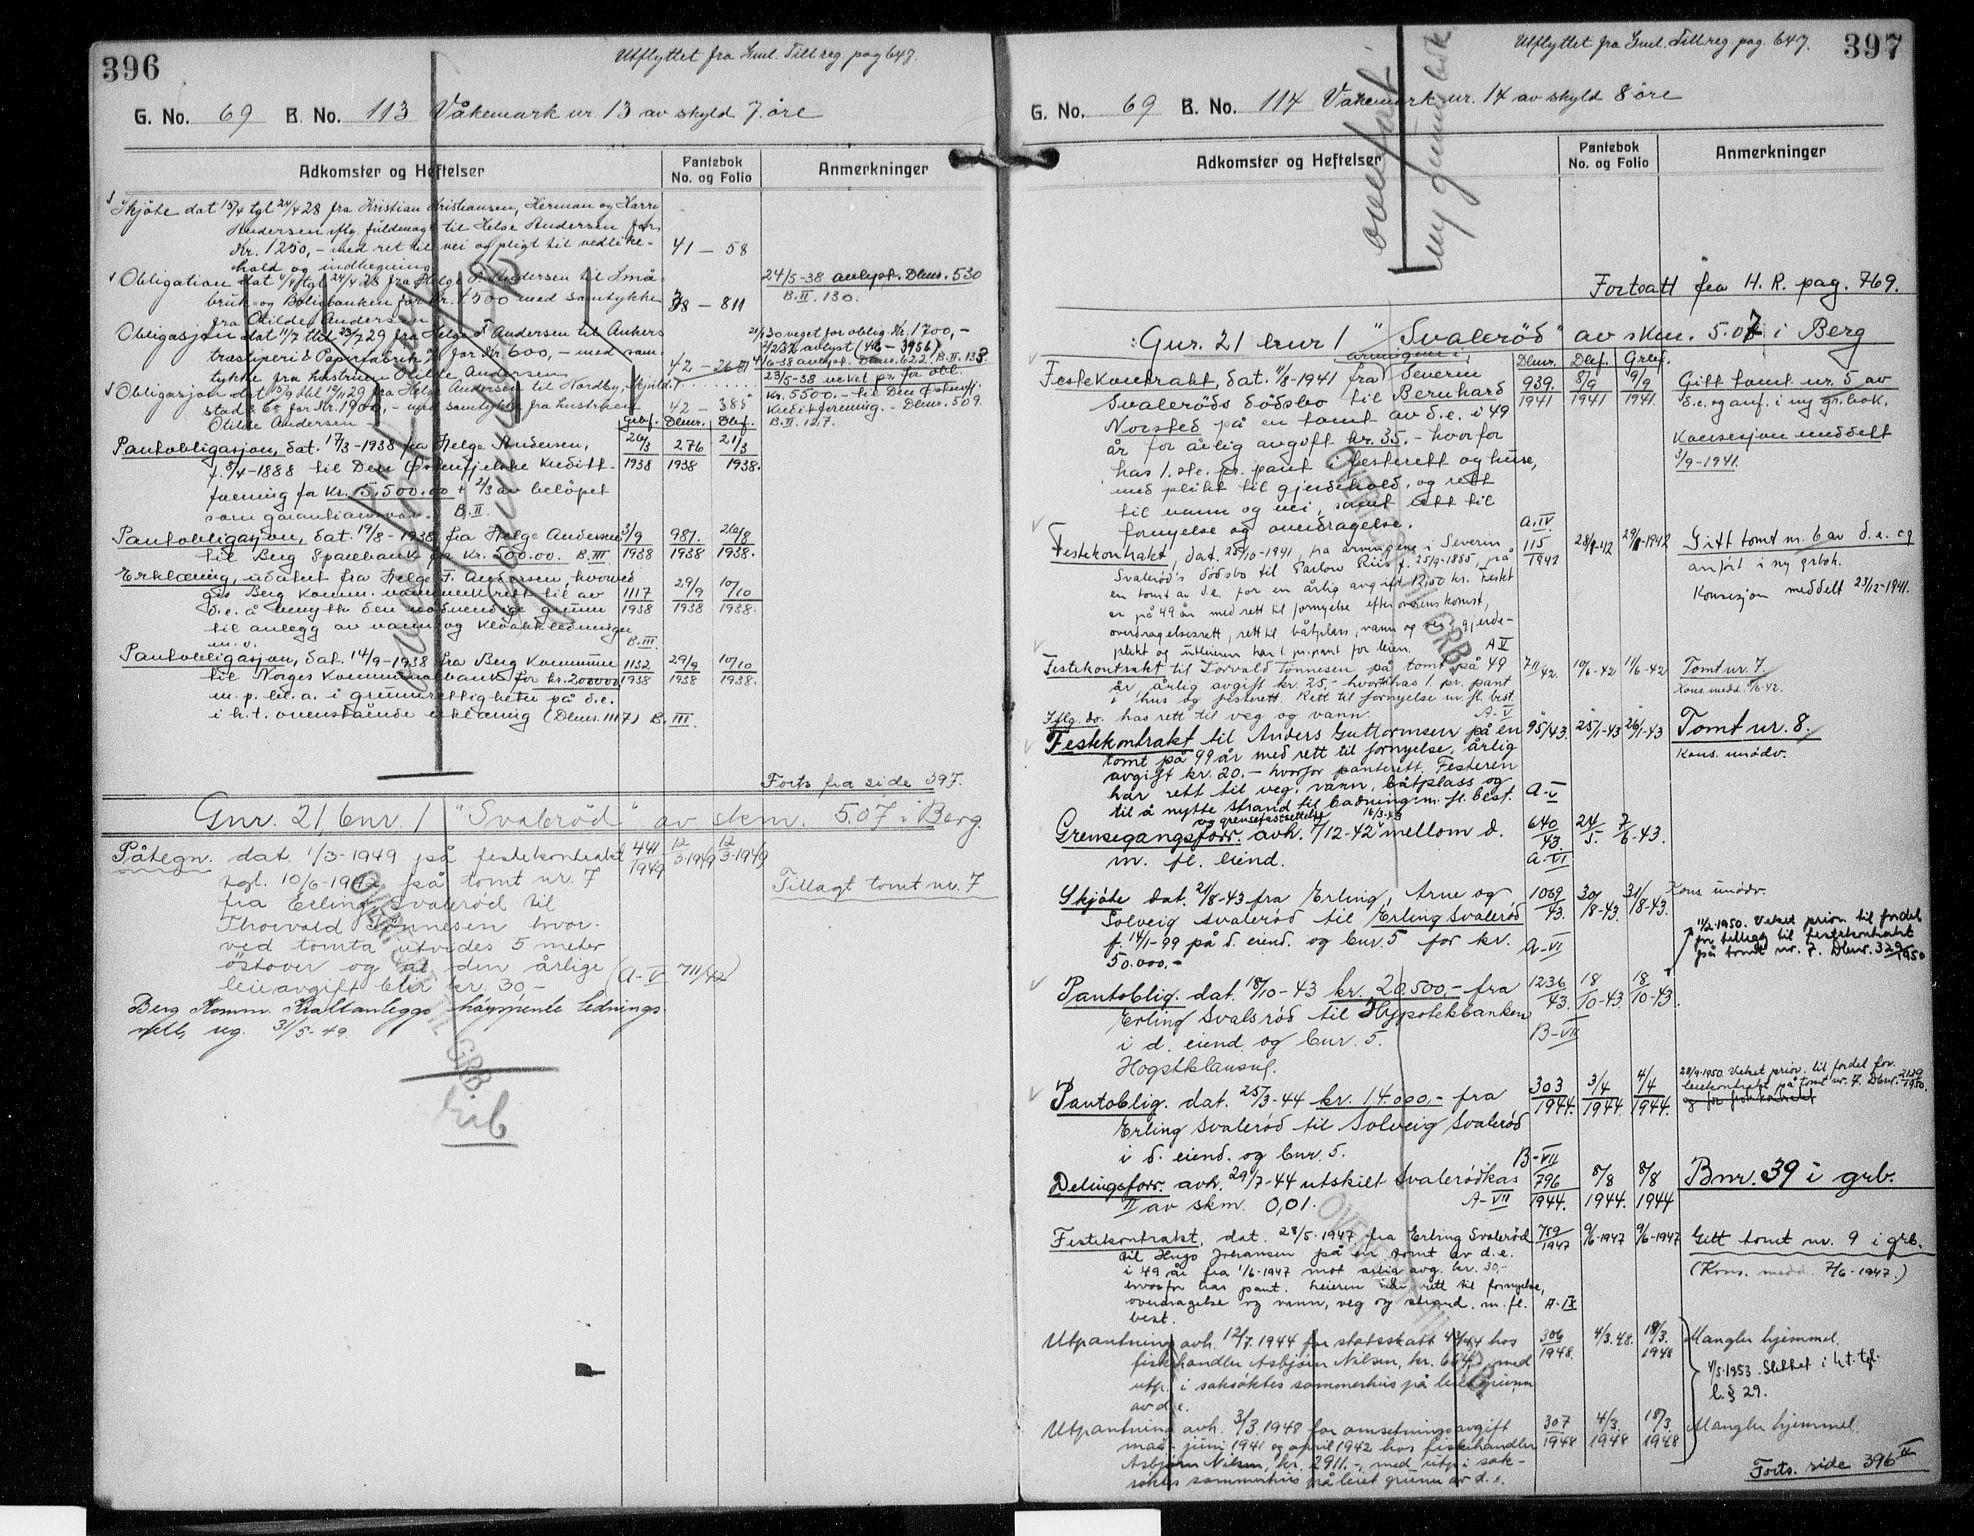 396
Utflyttet fra Gml. Till.reg. pag 647.
G. No. 69 B. No. 113 Våkemark nr 13 av skyld 7 øre
Adkomster og Heftelser
Pantebok No. og Folio
Anmerkninger
Skjøte dat 13/4 tgl 24/4 28 fra Kristian Kristiansen, Herman og Harry
Andersen iflg. fuldmagt til Helge Andersen for
Kr. 1250,- med ret til vei og pligt til vedlike-
hold og indhegning
41 – 58
Obligation dat tgl 24/4 28 fra Helge F. Andersen til Små-
bruk- og Boligbanken for Kr. 4500 med samtykke
fra Otilde Andersen
38 – 811
24/5-38 avlyst. Dbnr. 530
B. II. 130.
Obligasjon dat 11/7 tgl 23/7 29 fra Helge F Andersen til Ankers
træsliperi & Papirfabrik for Kr 600,- med sam-
tykke fra hustruen Otilde Andersen
veget for oblig. Kr. 1700,-
avlyst (46 – 3956)
6-38 avlyst. Dbnr. 622. B. II. 133.
Obligasjon dat 13/9 tgl 12/11 29 fra Helge Andersen til Nordby, Skjold-
stad & Co for Kr. 1900,- med samtykke fra hustruen
Otilde Andersen
42 – 385
23/5-38 veket pr. for obl.
Kr. 5500.- til Den Østenfj.
Kredittforening. – Dbnr. 509.
B. II. 127.
Grbf. Dbnr. Dbf.
Pantobligasjon, dat. 17/3-1938 fra Helge Andersen,
f. 8/4-1888 til Den Østenfjelske Kreditt-
forening for Kr. 5.500.00 + 2/3 av beløpet
som garantiansvar. B. II.
26/3 1938 276 1938 21/3 1938.
Pantobligasjon, dat. 19/8-1938 fra Helge Andersen
til Berg Sparebank for Kr. 500.00. B. III
3/9 1938 981. 1938 26/8 1938.
Erklæring, utstedt fra Helge F. Andersen, hvorved
gis Berg Komm. vannverk rett til av
d.e. å benytte den nødvendige grunn
til anlegg av vann og kloakkledninger
m. v. B. III.
1117 1938 29/9 1938 10/10 1938.
Pantobligasjon, dat. 14/9-1938 fra Berg Kommune
til Norges Kommunalbank for kr. 200000
m. p. bl. a. i grunnrettigheter på d.e.
i h. t. ovenstående erklæring (Dbnr. 1117) B. III.
1132 1938 29/9 1938 10/10 1938.
Forts fra side 397.
Gnr. 21, bnr. 1 "Svalerød" av skm. 5.07 i Berg.
Påtegn. dat. 1/3-1949 på festekontrakt
tgl. 10/6-1942 på tomt nr. 7
fra Erling Svalerød til
Thorvald Tønnesen hvor-
ved tomta utvides 5 meter
østover og at den årlige
leieavgift blir kr. 30-
441 1949 12/3-1949 12/3-1949
Tillagt tomt nr. 7
(A-V 711/42)
Berg Komm. Kraftanleggs høyspente lednings-
nett, reg. 31/5-49.
OVERFØRT TIL GRB.
grb
397
Utflyttet fra Gml. Till.reg. pag. 647.
G. No. 69 B. No. 114 Våkemark nr. 14 av skyld 8 øre
overført
ny grunnbok
Adkomster og Heftelser
Pantebok No. og Folio
Anmerkninger
Fortsatt fra H. R. pag. 769.
Gnr. 21 bnr 1 "Svalerød" av skm. 5.07 i Berg
Dbnr. Dbf. Grbf.
Festekontrakt, dat. 11/8-1941 fra arvingene i Severin
Svalerøds dødsbo til Bernhard
Norsted på en tomt av d.e. i 49
år for årlig avgift kr. 35.- hvorfor
has 1. ste. pr. pant i festerett og huse,
med plikt til gjerdehold, og rett
til vann og vei, samt rett til
fornyelse og overdragelse. A. IV.
939. 1941 8/9 1941 9/9 1941.
Gitt tomt nr. 5 av
d.e. og anf. i ny grbok.
Konsesjon meddelt
3/9-1941.
Festekontrakt, dat. 25/10-1941, fra arvingene i Severin
Svalerød's dødsbo til Carlow Riis f. 25/9-1885, på
en tomt av d.e. for en årlig avgift 12,50 kr. Festet
er på 49 år med rett til fornyelse efter overenskomst,
overdragelsesrett, rett til båtplass, vann og vei, gjerde-
plikt og utleieren har 1. pr. pant for leien. A V
115 1942
Gitt tomt nr. 6 av d.e. og
anført i ny grbok.
Konsesjon meddelt 23/12-1941.
Festekontrakt til Torvald Tønnesen på tomt på 49
år, årlig avgift kr 25,- hvorfor has 1. pr. pant
i hus og festerett. Rett til fornyelse m. fl. best.
Iflg. do. has rett til veg og vann. A-V
711/42. 10/6-42 11/6-42
Tomt nr. 7.
Kons. medd. /6-42.
Festekontrakt til Anders Guttormsen på en
tomt på 99 år med rett til fornyelse, årlig
avgift kr. 20.- hvorfor panterett. Festeren
har rett til veg, vann, båtplass og
til å nytte strand til badning m. fl. best.
95/43. 25/1-43 26/1-43
A-V
Tomt nr. 8.
Kons. unødv.
og grensefastsettelse 16/3-43
Grensegangsforr. avh. 7/12-42 mellom d.
m. fl. eiend.
640 43. A-VI 24/5- 7/6-43.
Skjøte dat. 21/8-43 fra Erling, Arne og
Solveig Svalerød til Erling Svalerød
f. 14/1-99 på d. eiend. og bnr. 5 for kr.
50.000.-
1069 43. A-VI 30/8-43. 31/8-43.
Kons unødv.
11/2-1950. Veket prior. til fordel
for tillegg til festekontrakt
på tomt nr. 7. Dbnr. 329/1950
Pantoblig. dat. 18/10-43 kr. 20.500,- fra
Erling Svalerød til Hypotekbanken
i d. eiend. og bnr. 5.
Hogstklausul.
1236 43. 18/10-43. 18/10-43.
B-VII
Pantoblig. dat. 25/3-44 kr. 14.000,- fra
Erling Svalerød til Solveig Svalerød
i d. eiend. og bnr. 5. B-VII
303 1944. 3/4 1944. 4/4 1944.
28/9-1950. Veket prior. til fordel for
leiekontrakt på tomt nr. 7. Dbnr. 2129/1950.
Delingsforr. avh. 29/7-44 utskilt Svalerødkas
II av skm. 0,01. A-VII
796 1944. 8/8 1944. 8/8 1944
Bnr. 39 i grb.
Festekontrakt, dat. 28/5-1947 fra Erling Svalerød
til Hugo Iversen på en tomt av d.e.
i 49 år fra 1/6-1947 mot årlig avg. kr. 30,-
hvorfor has pant. Leieren har rett til fornyelse,
overdragelse og vann, veg og strand. m. fl.
best. A-IX
759 1947 9/6-1947 9/6-1947
Gitt tomt nr. 9 i grb.
(Kons. medd. 7/6-1947.)
Utpantning avh. 12/7 1944 for statsskatt 43/44 hos
fiskehandler Asbjørn Nilsen, kr. 664,- med
utp. i saksøktes sommerhus på leiet grunn
av d.e.
306 1948. 4/3.48. 18/3. 1948
Mangler hjemmel.
1/5-1953. Slettet i h.t. tgl.
l. § 29.
Utpantning avh. 3/3 1948 for omsetningsavgift
mai-juni 1941 og april 1942 hos fiskehandler
Asbjørn Nilsen, kr. 2911.-, med utp. i sak-
søktes sommerhus på leiet grunn av d.e.
307 1948 4/3. 1948 18/3. 1948
Mangler hjemmel.
Forts. side 396